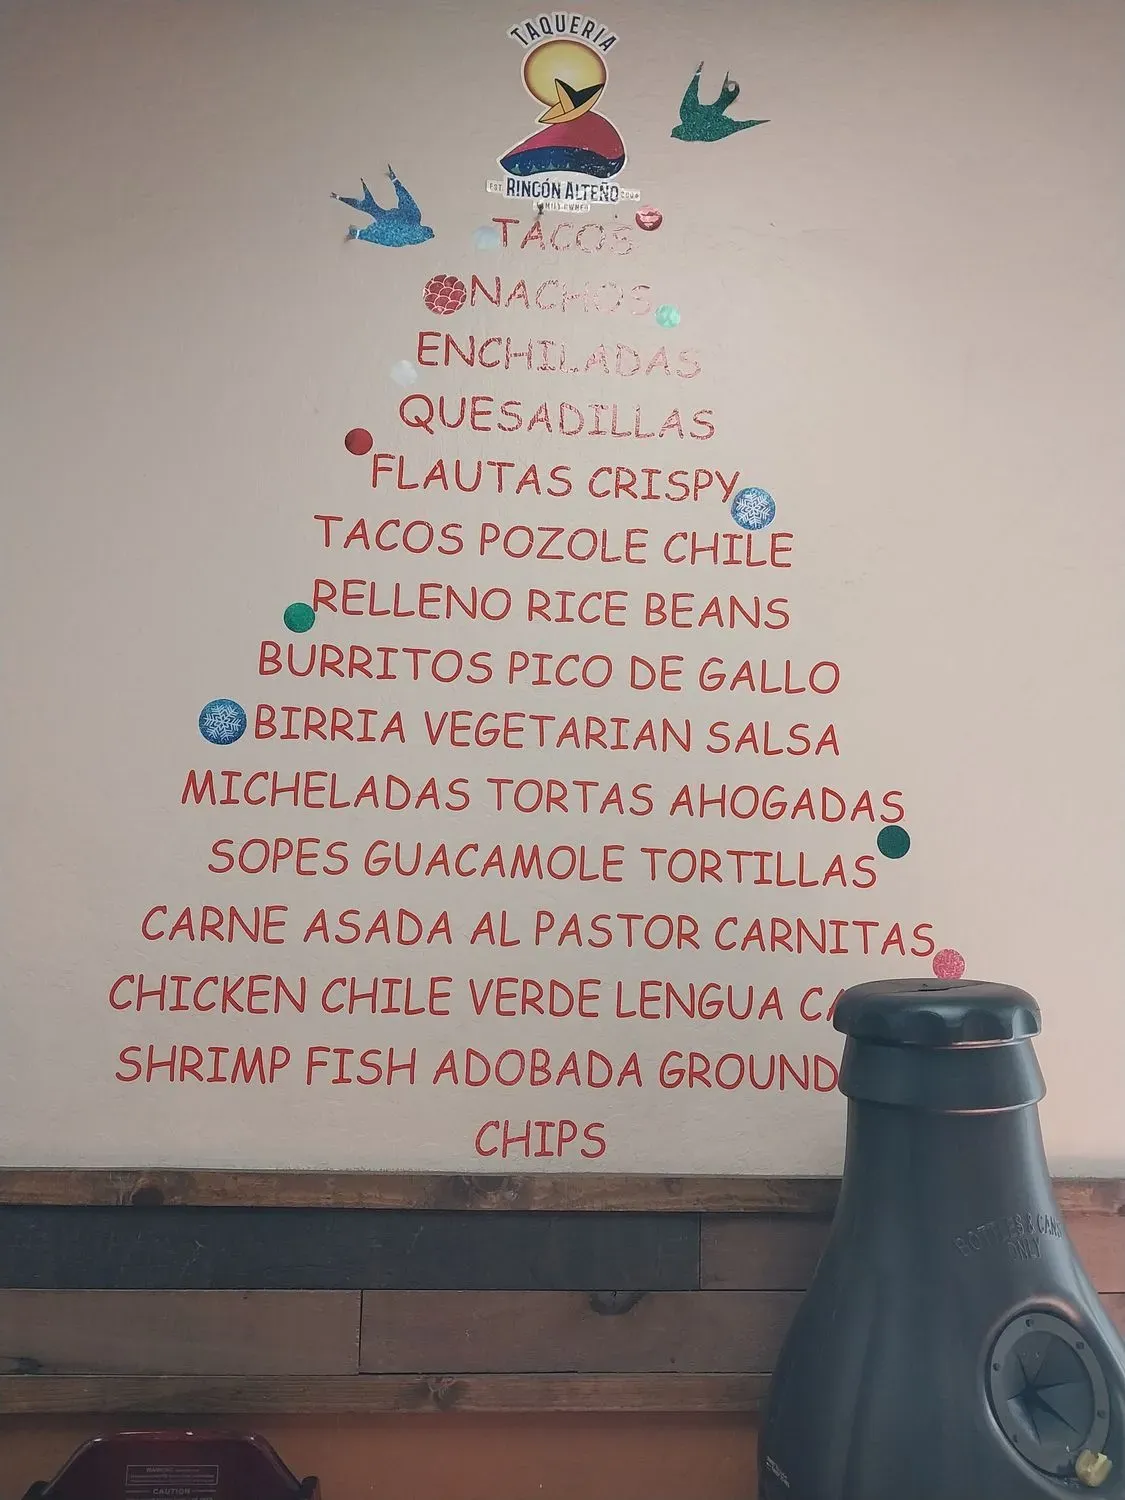 TAQUERIA
EST.
RINCÓN ALTEÑO
TACOS
NACHOS
ENCHILADAS
QUESADILLAS
FLAUTAS CRISPY
TACOS POZOLE CHILE
RELLENO RICE BEANS
BURRITOS PICO DE GALLO
BIRRIA VEGETARIAN SALSA
MICHELADAS TORTAS AHOGADAS
SOPES GUACAMOLE TORTILLAS
CARNE ASADA AL PASTOR CARNITAS
CHICKEN CHILE VERDE LENGUA CA
SHRIMP FISH ADOBADA GROUND
CHIPS
BOTTLES & CANS
ONLY
WARNING
CAUTION